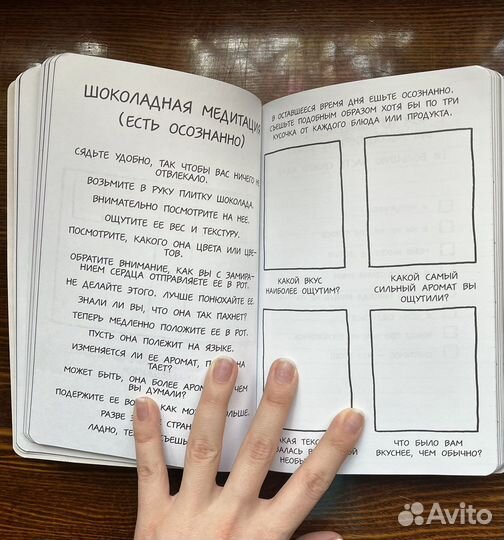 ШОКОЛАДНАЯ МЕДИТАЦИЯ
(ЕСТЬ ОСОЗНАННО)
СЯДЬТЕ УДОБНО, ТАК ЧТОБЫ ВАС НИЧЕГО НЕ
ОТВЛЕКАЛО.
ВОЗЬМИТЕ В РУКУ ПЛИТКУ ШОКОЛАДА.
ВНИМАТЕЛЬНО ПОСМОТРИТЕ НА НЕЕ.
ОЩУТИТЕ ЕЕ ВЕС И ТЕКСТУРУ.
ПОСМОТРИТЕ, КАКОГО ОНА ЦВЕТА ИЛИ ЦВЕ-
ТОВ.
ОБРАТИТЕ ВНИМАНИЕ, КАК ВЫ С ЗАМИРА-
НИЕМ СЕРДЦА ОТПРАВЛЯЕТЕ ЕЕ В РОТ.
НЕ ДЕЛАЙТЕ ЭТОГО. ЛУЧШЕ ПОНЮХАЙТЕ ЕЕ.
ЗНАЛИ ЛИ ВЫ, ЧТО ОНА ТАК ПАХНЕТ?
ТЕПЕРЬ МЕДЛЕННО ПОЛОЖИТЕ ЕЕ В РОТ.
ПУСТЬ ОНА ПОЛЕЖИТ НА ЯЗЫКЕ.
ИЗМЕНЯЕТСЯ ЛИ ЕЕ АРОМАТ, ОНА
ТАЕТ?
МОЖЕТ БЫТЬ, ОНА БОЛЕЕ ЧЕМ
ВЫ ДУМАЛИ?
ПОДЕРЖИТЕ ЕЕ ВО КАК
РАЗВЕ ЭТО
ЛАДНО,
В ОСТАВШЕЕСЯ ВРЕМЯ ДНЯ ЕШЬТЕ ОСОЗНАННО.
СЪЕШЬТЕ ПОДОБНЫМ ОБРАЗОМ ХОТЯ БЫ ПО ТРИ
КУСОЧКА ОТ КАЖДОГО БЛЮДА ИЛИ ПРОДУКТА.
КАКОЙ ВКУС
НАИБОЛЕЕ ОЩУТИМ?
КАКОЙ САМЫЙ
СИЛЬНЫЙ АРОМАТ ВЫ
ОЩУТИЛИ?
ЧТО БЫЛО ВАМ
ВКУСНЕЕ, ЧЕМ ОБЫЧНО?
Avito